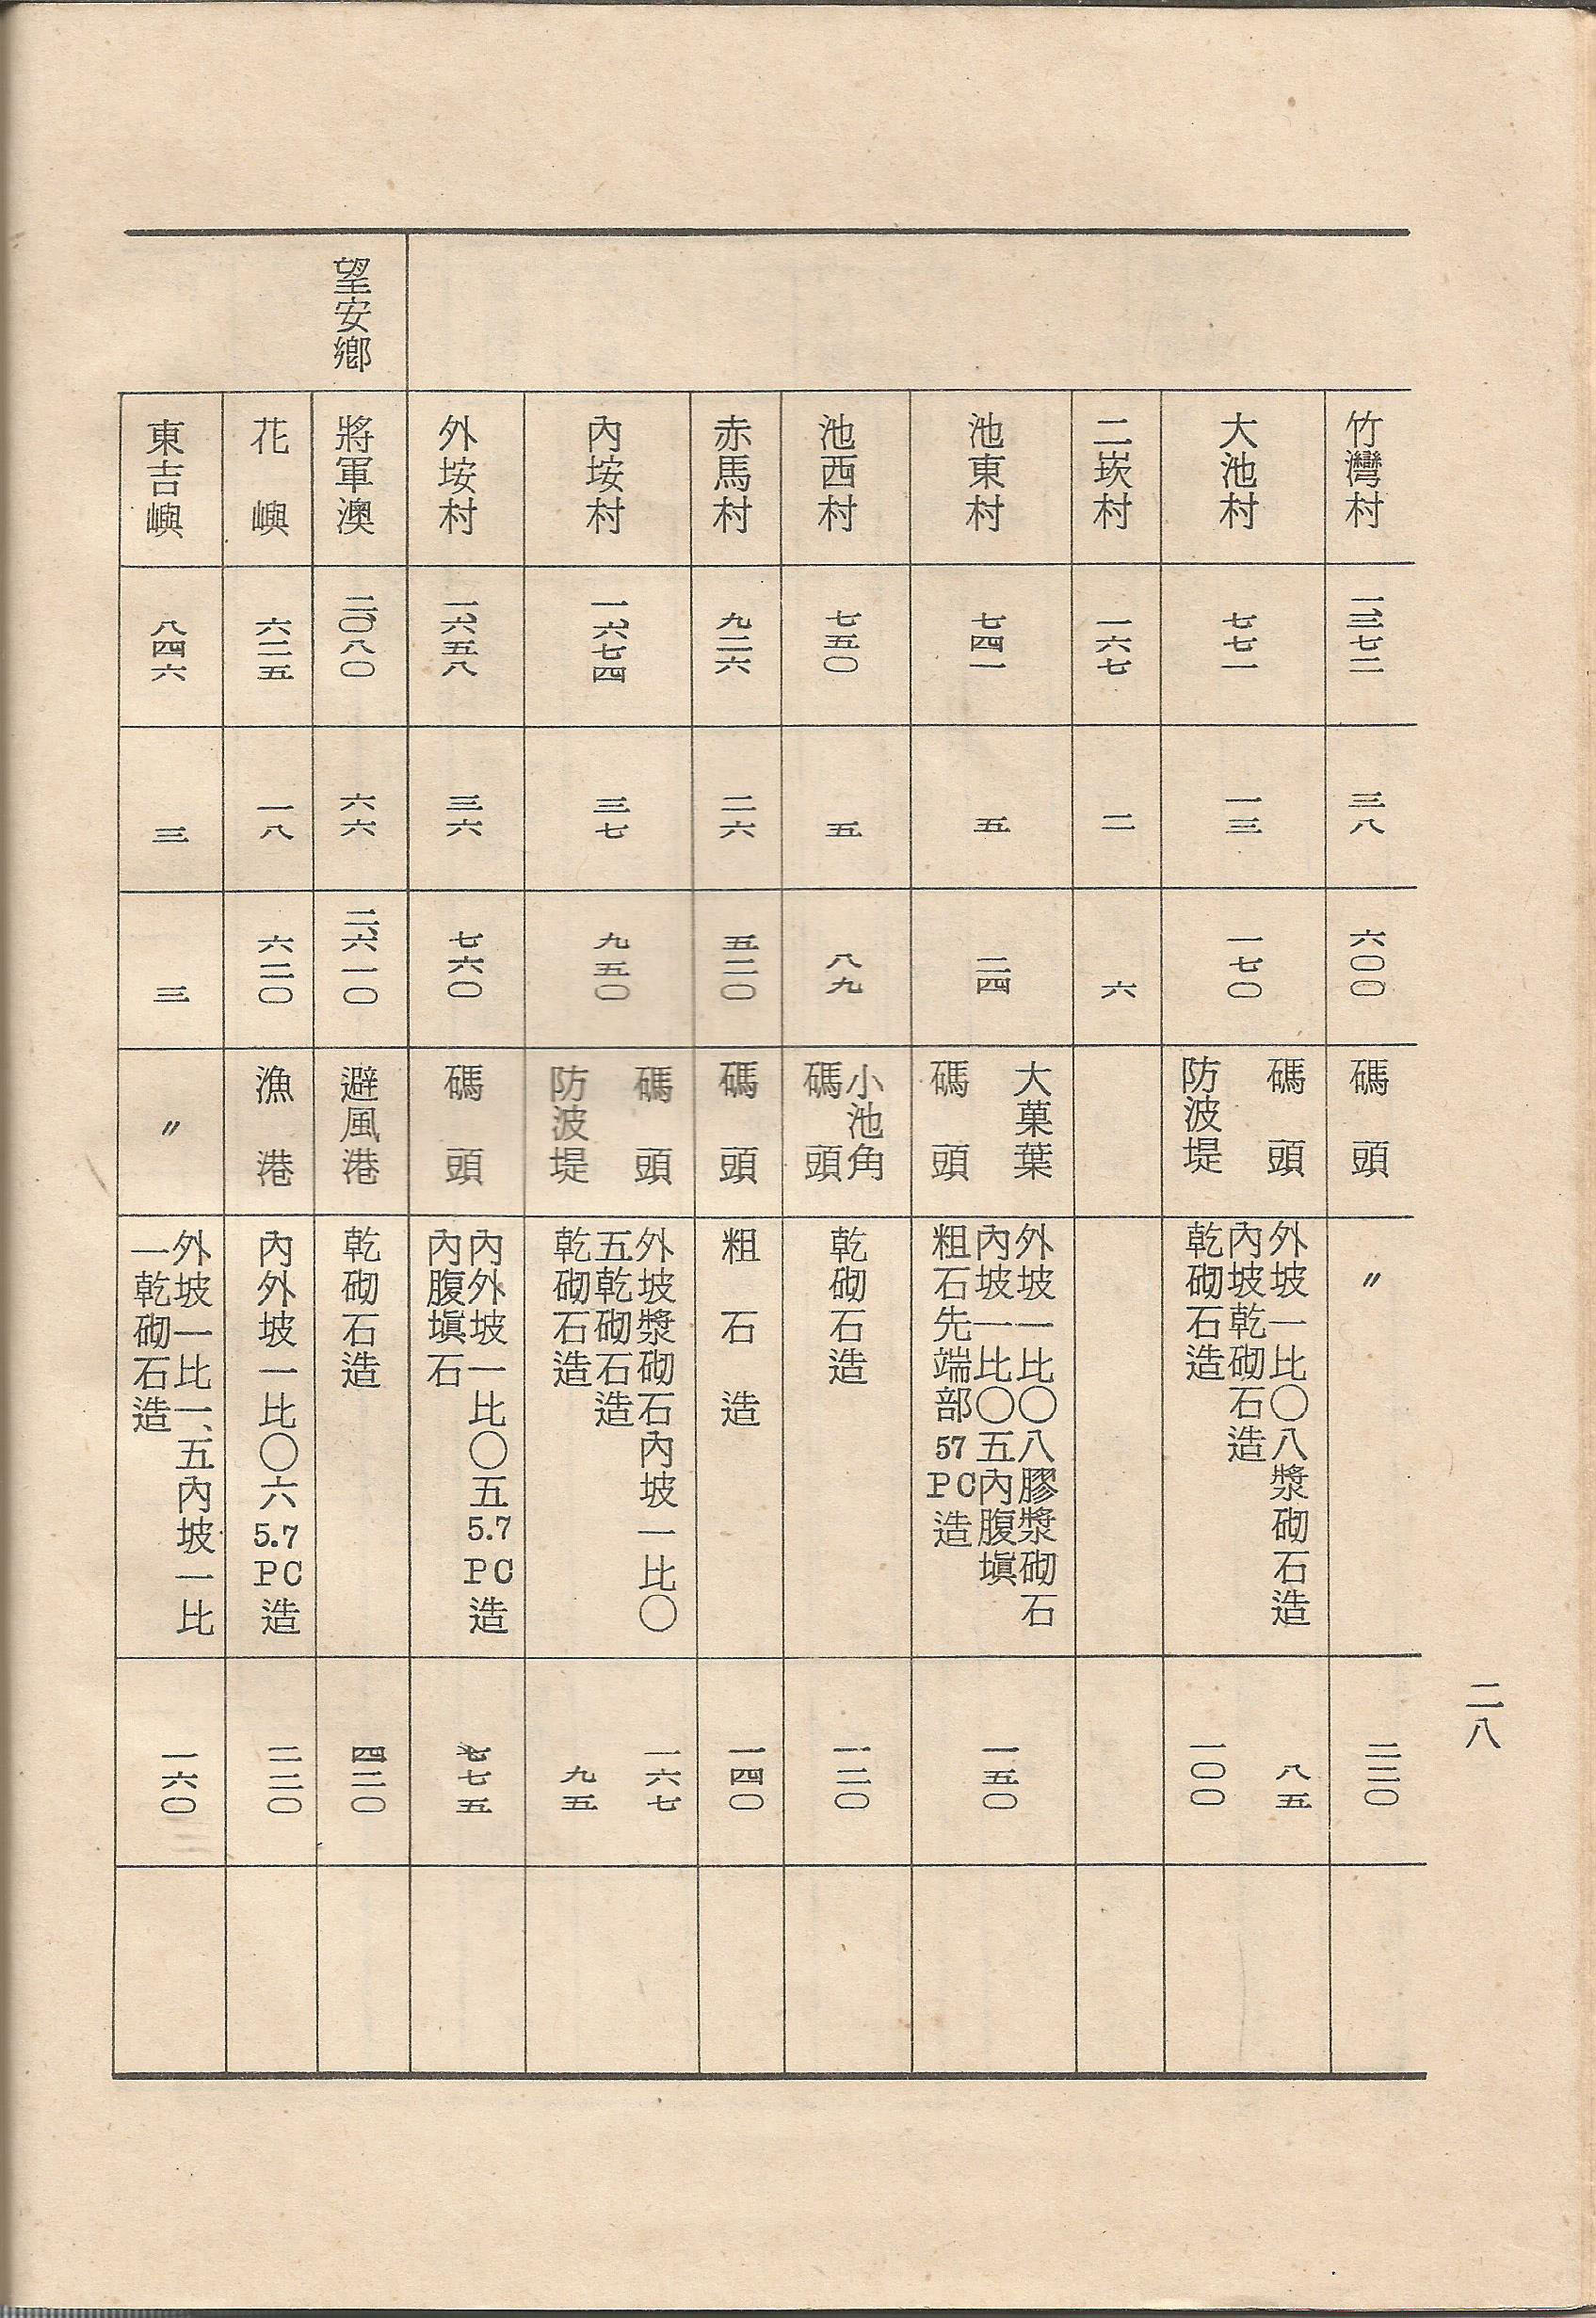 二八
竹灣村
一、三七二
三八
六〇〇
碼頭
〃
二二〇
大池村
七七一
一三
一七〇
碼頭
防波堤
外坡一比〇八漿砌石造
內坡乾砌石造
乾砌石造
八五
一〇〇
二崁村
一六七
二
六
池東村
七四一
五
二四
大菓葉
碼頭
外坡一比〇八膠漿砌石
內坡一比〇五內腹塡
粗石先端部57PC造
一五〇
池西村
七五〇
五
八九
小池角
碼頭
乾砌石造
一二〇
赤馬村
九二六
二六
五二〇
碼頭
粗石造
一四〇
內垵村
一、六七四
三七
九五〇
碼頭
防波堤
外坡漿砌石內坡一比〇
五乾砌石造
乾砌石造
一六七
九五
外垵村
一、六五八
三六
七六〇
碼頭
內外坡一比〇五5.7PC造
內腹塡石
七五
望安鄉
將軍澳
二、〇八〇
六六
二、六一〇
避風港
乾砌石造
四二〇
花嶼
六二五
一八
六二〇
漁港
內外坡一比〇六5.7PC造
二二〇
東吉嶼
八四六
三
三
〃
外坡一比一、五內坡一比
一乾砌石造
一六〇